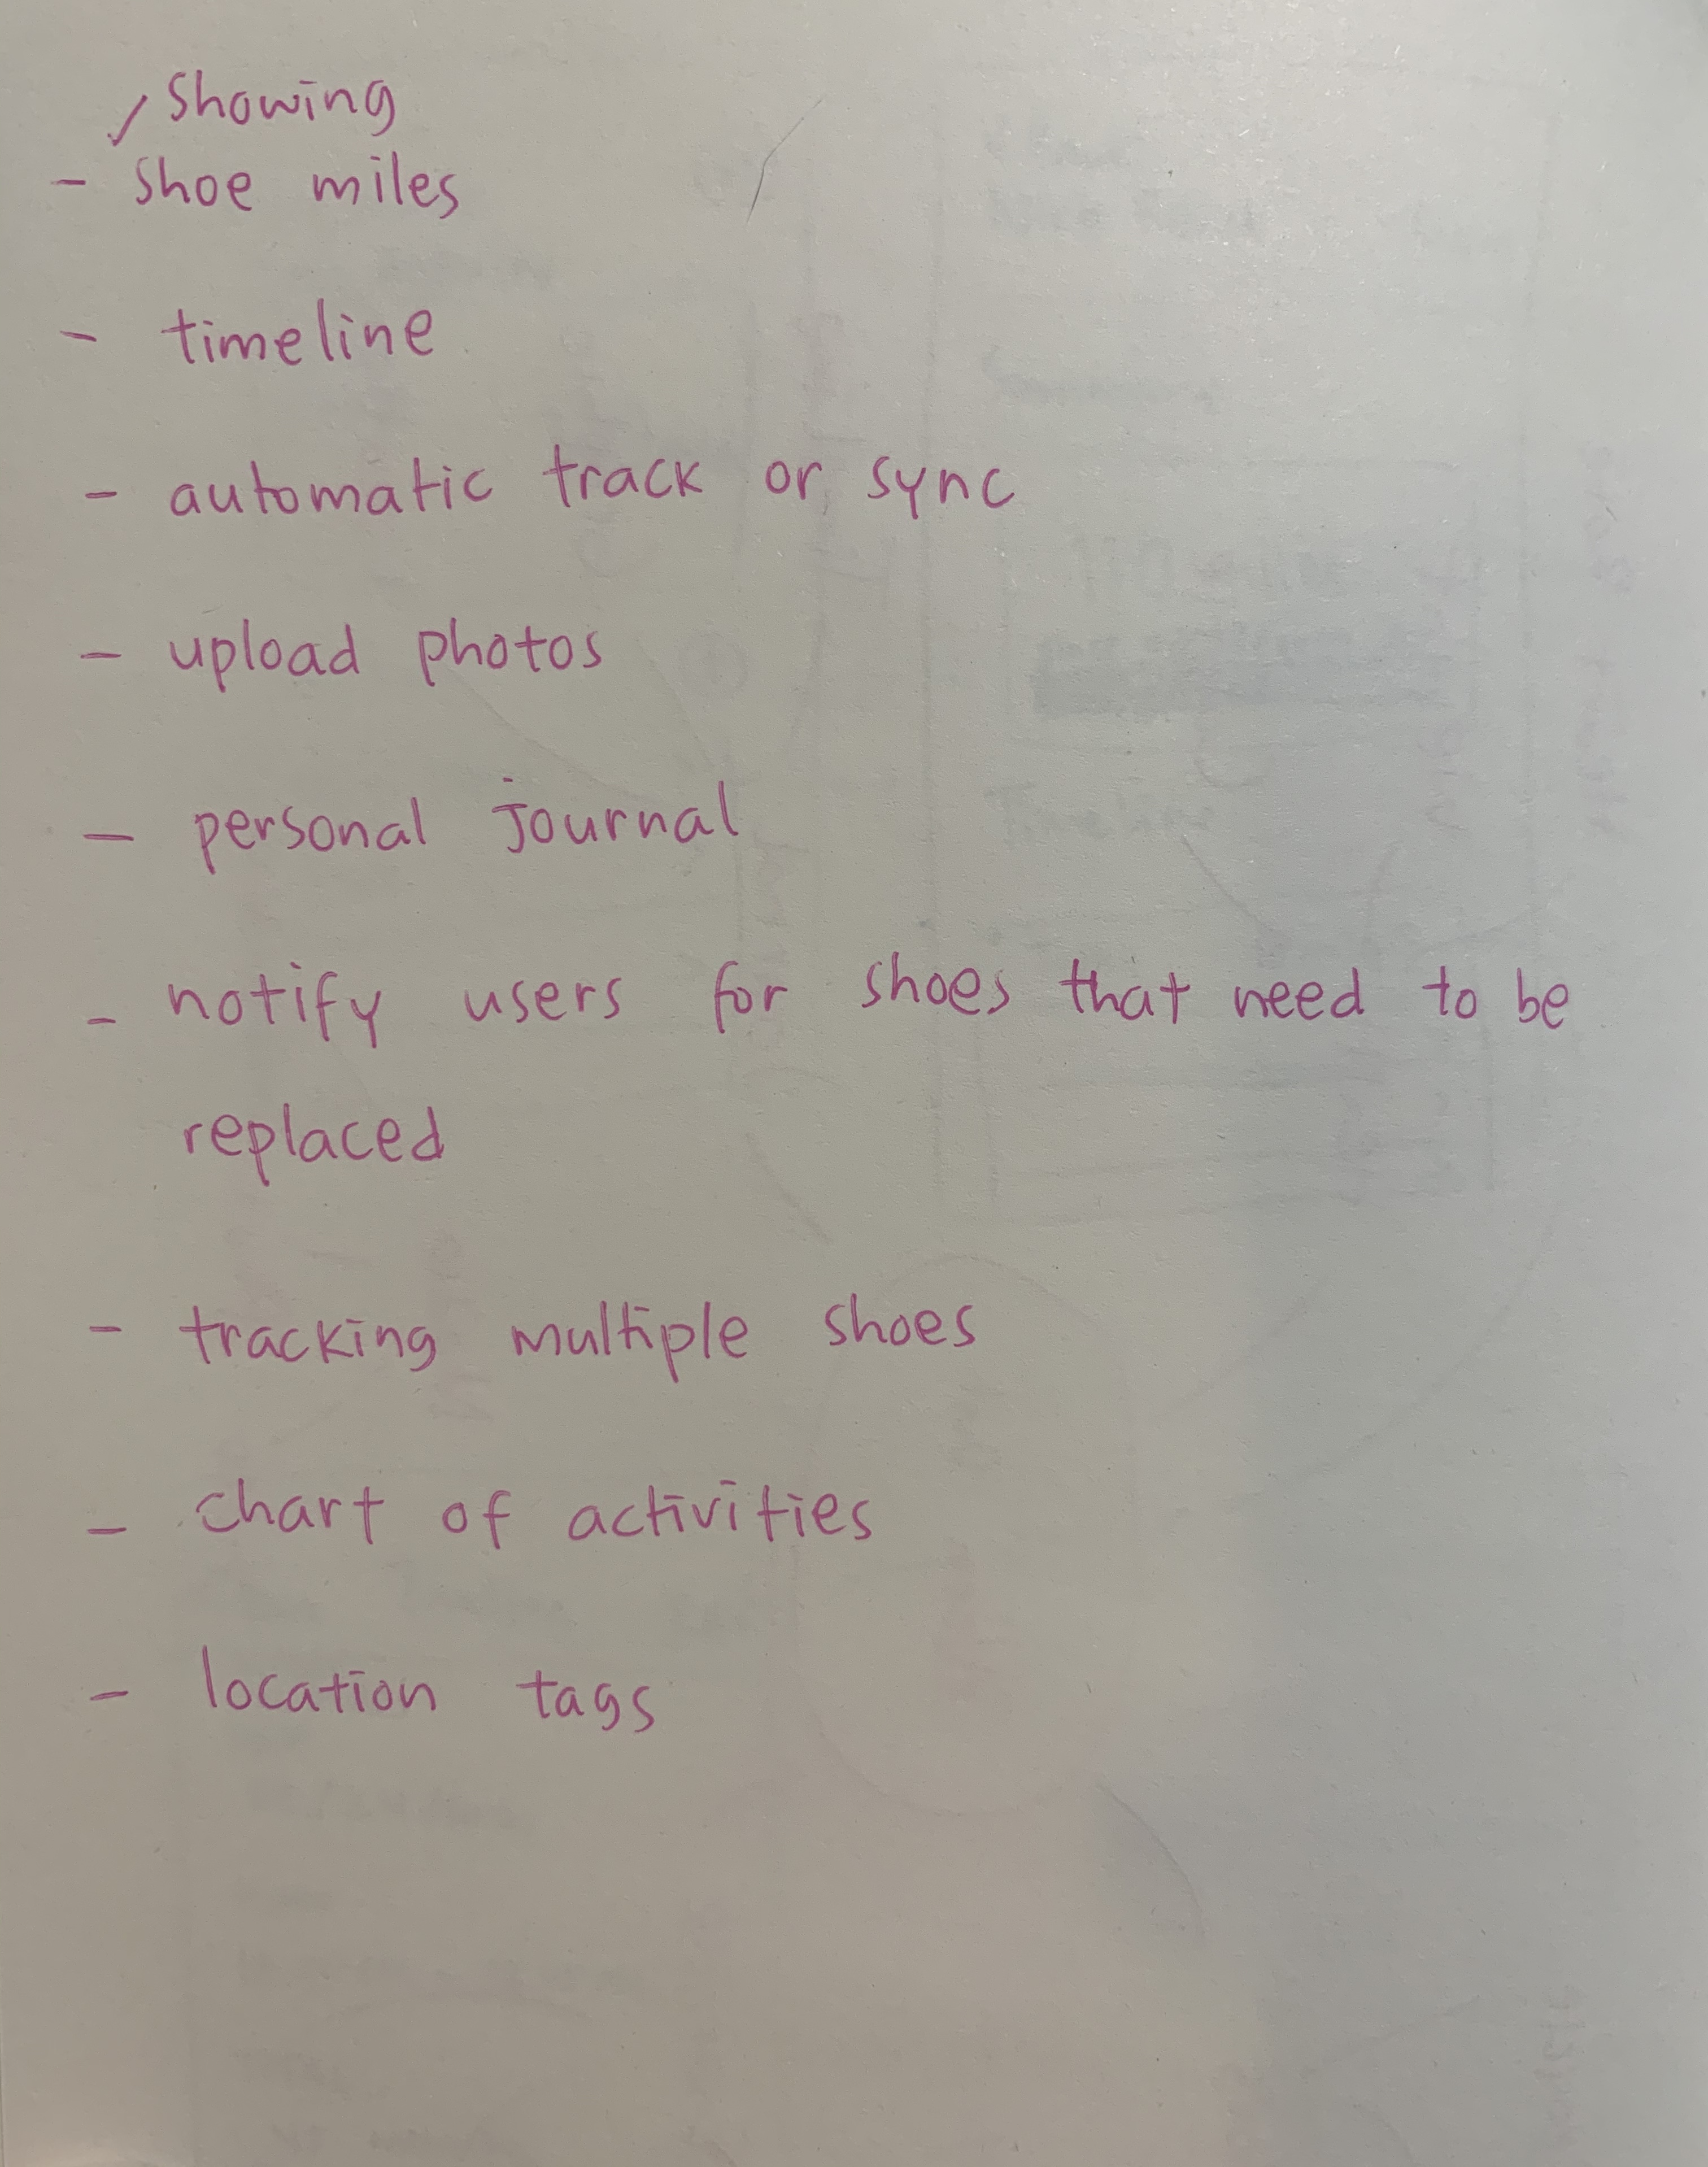 showing
- shoe miles
- timeline
- automatic track or sync
- upload photos
- personal journal
- notify users for shoes that need to be
replaced
- tracking multiple shoes
- chart of activities
- location tags